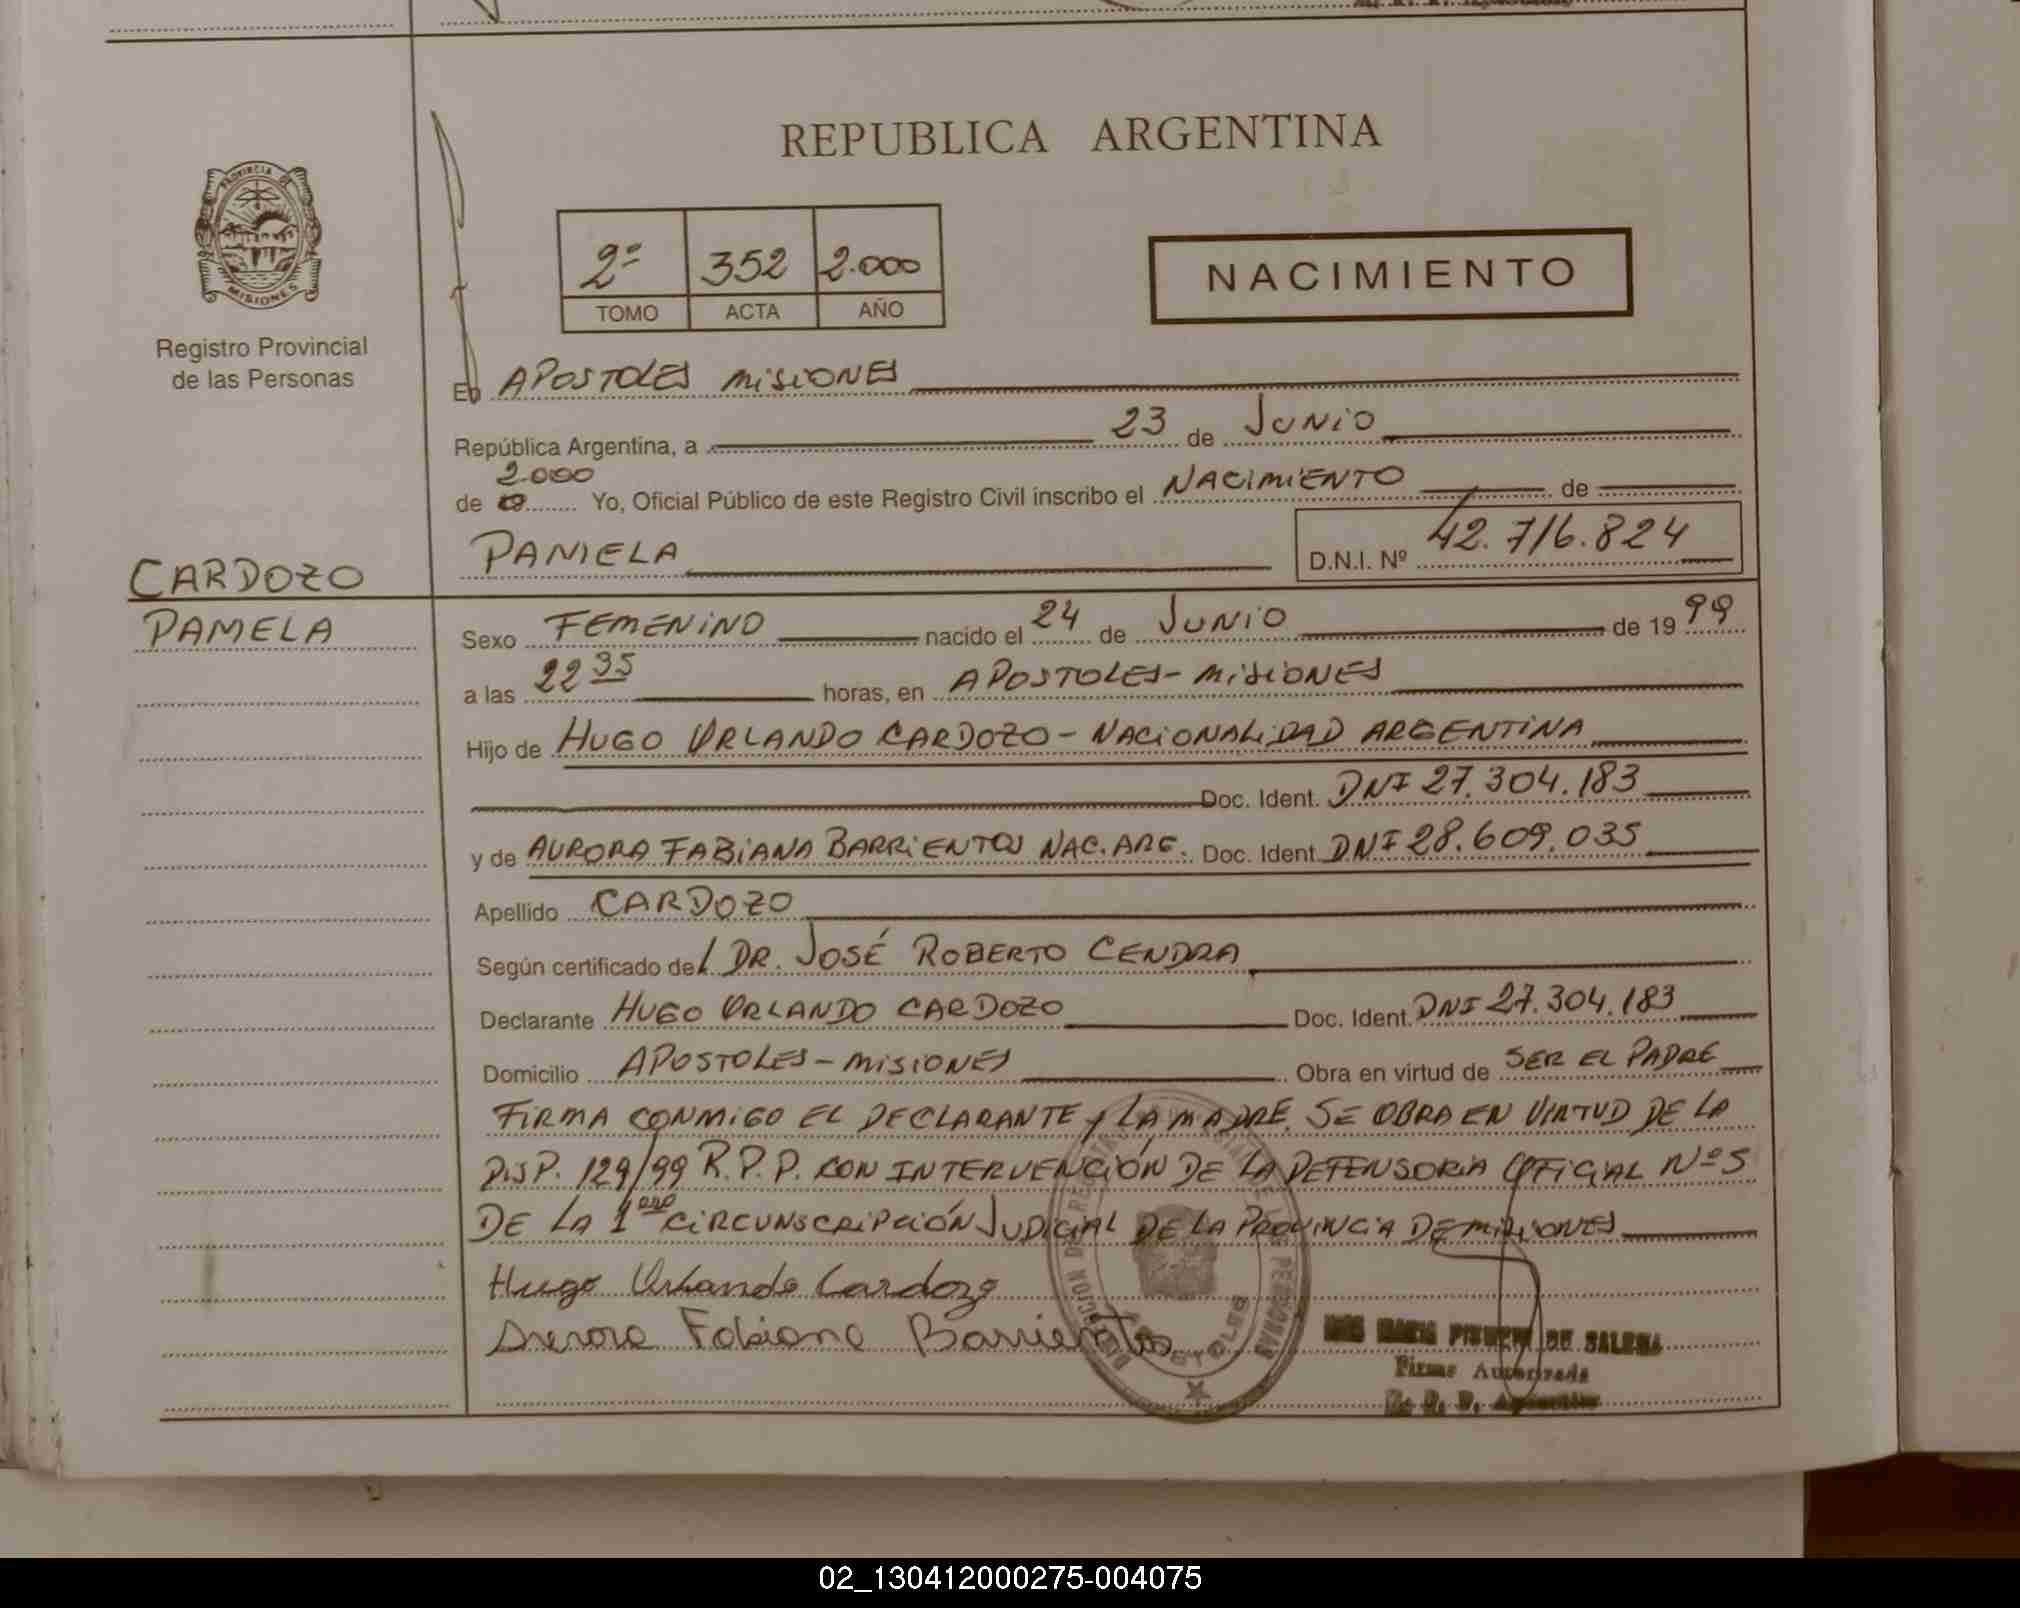 REPUBLICA ARGENTINA
PROVINCIA DE
MISIONES
Registro Provincial
de las Personas
2º 352 2.000
TOMO ACTA AÑO
NACIMIENTO
En APOSTOLES MISIONES
República Argentina, a 23 de JUNIO
2.000
de Yo, Oficial Público de este Registro Civil inscribo el NACIMIENTO de
PAMELA D.N.I. Nº 42.716.824
CARDOZO
PAMELA
Sexo FEMENINO nacido el 24 de JUNIO de 19 99
a las 22 35 horas, en APOSTOLES - MISIONES
Hijo de HUGO ORLANDO CARDOZO - NACIONALIDAD ARGENTINA
Doc. Ident. DNI 27.304.183
y de AURORA FABIANA BARRIENTOS NAC. ARG. Doc. Ident DNI 28.609.035
Apellido CARDOZO
Según certificado del DR. JOSÉ ROBERTO CENDRA
Declarante HUGO ORLANDO CARDOZO Doc. Ident. DNI 27.304.183
Domicilio APOSTOLES - MISIONES Obra en virtud de SER EL PADRE
FIRMA CONMIGO EL DECLARANTE y LA MADRE. SE OBRA EN VIRTUD DE LA
DISP. 129/99 R.P.P. CON INTERVENCIÓN DE LA DEFENSORIA OFICIAL Nº 5
DE LA 1era CIRCUNSCRIPCIÓN JUDICIAL DE LA PROVINCIA DE MISIONES
Hugo Orlando Cardozo
Aurora Fabiana Barrientos
DE SALENA
Firma Autorizada
02_130412000275-004075